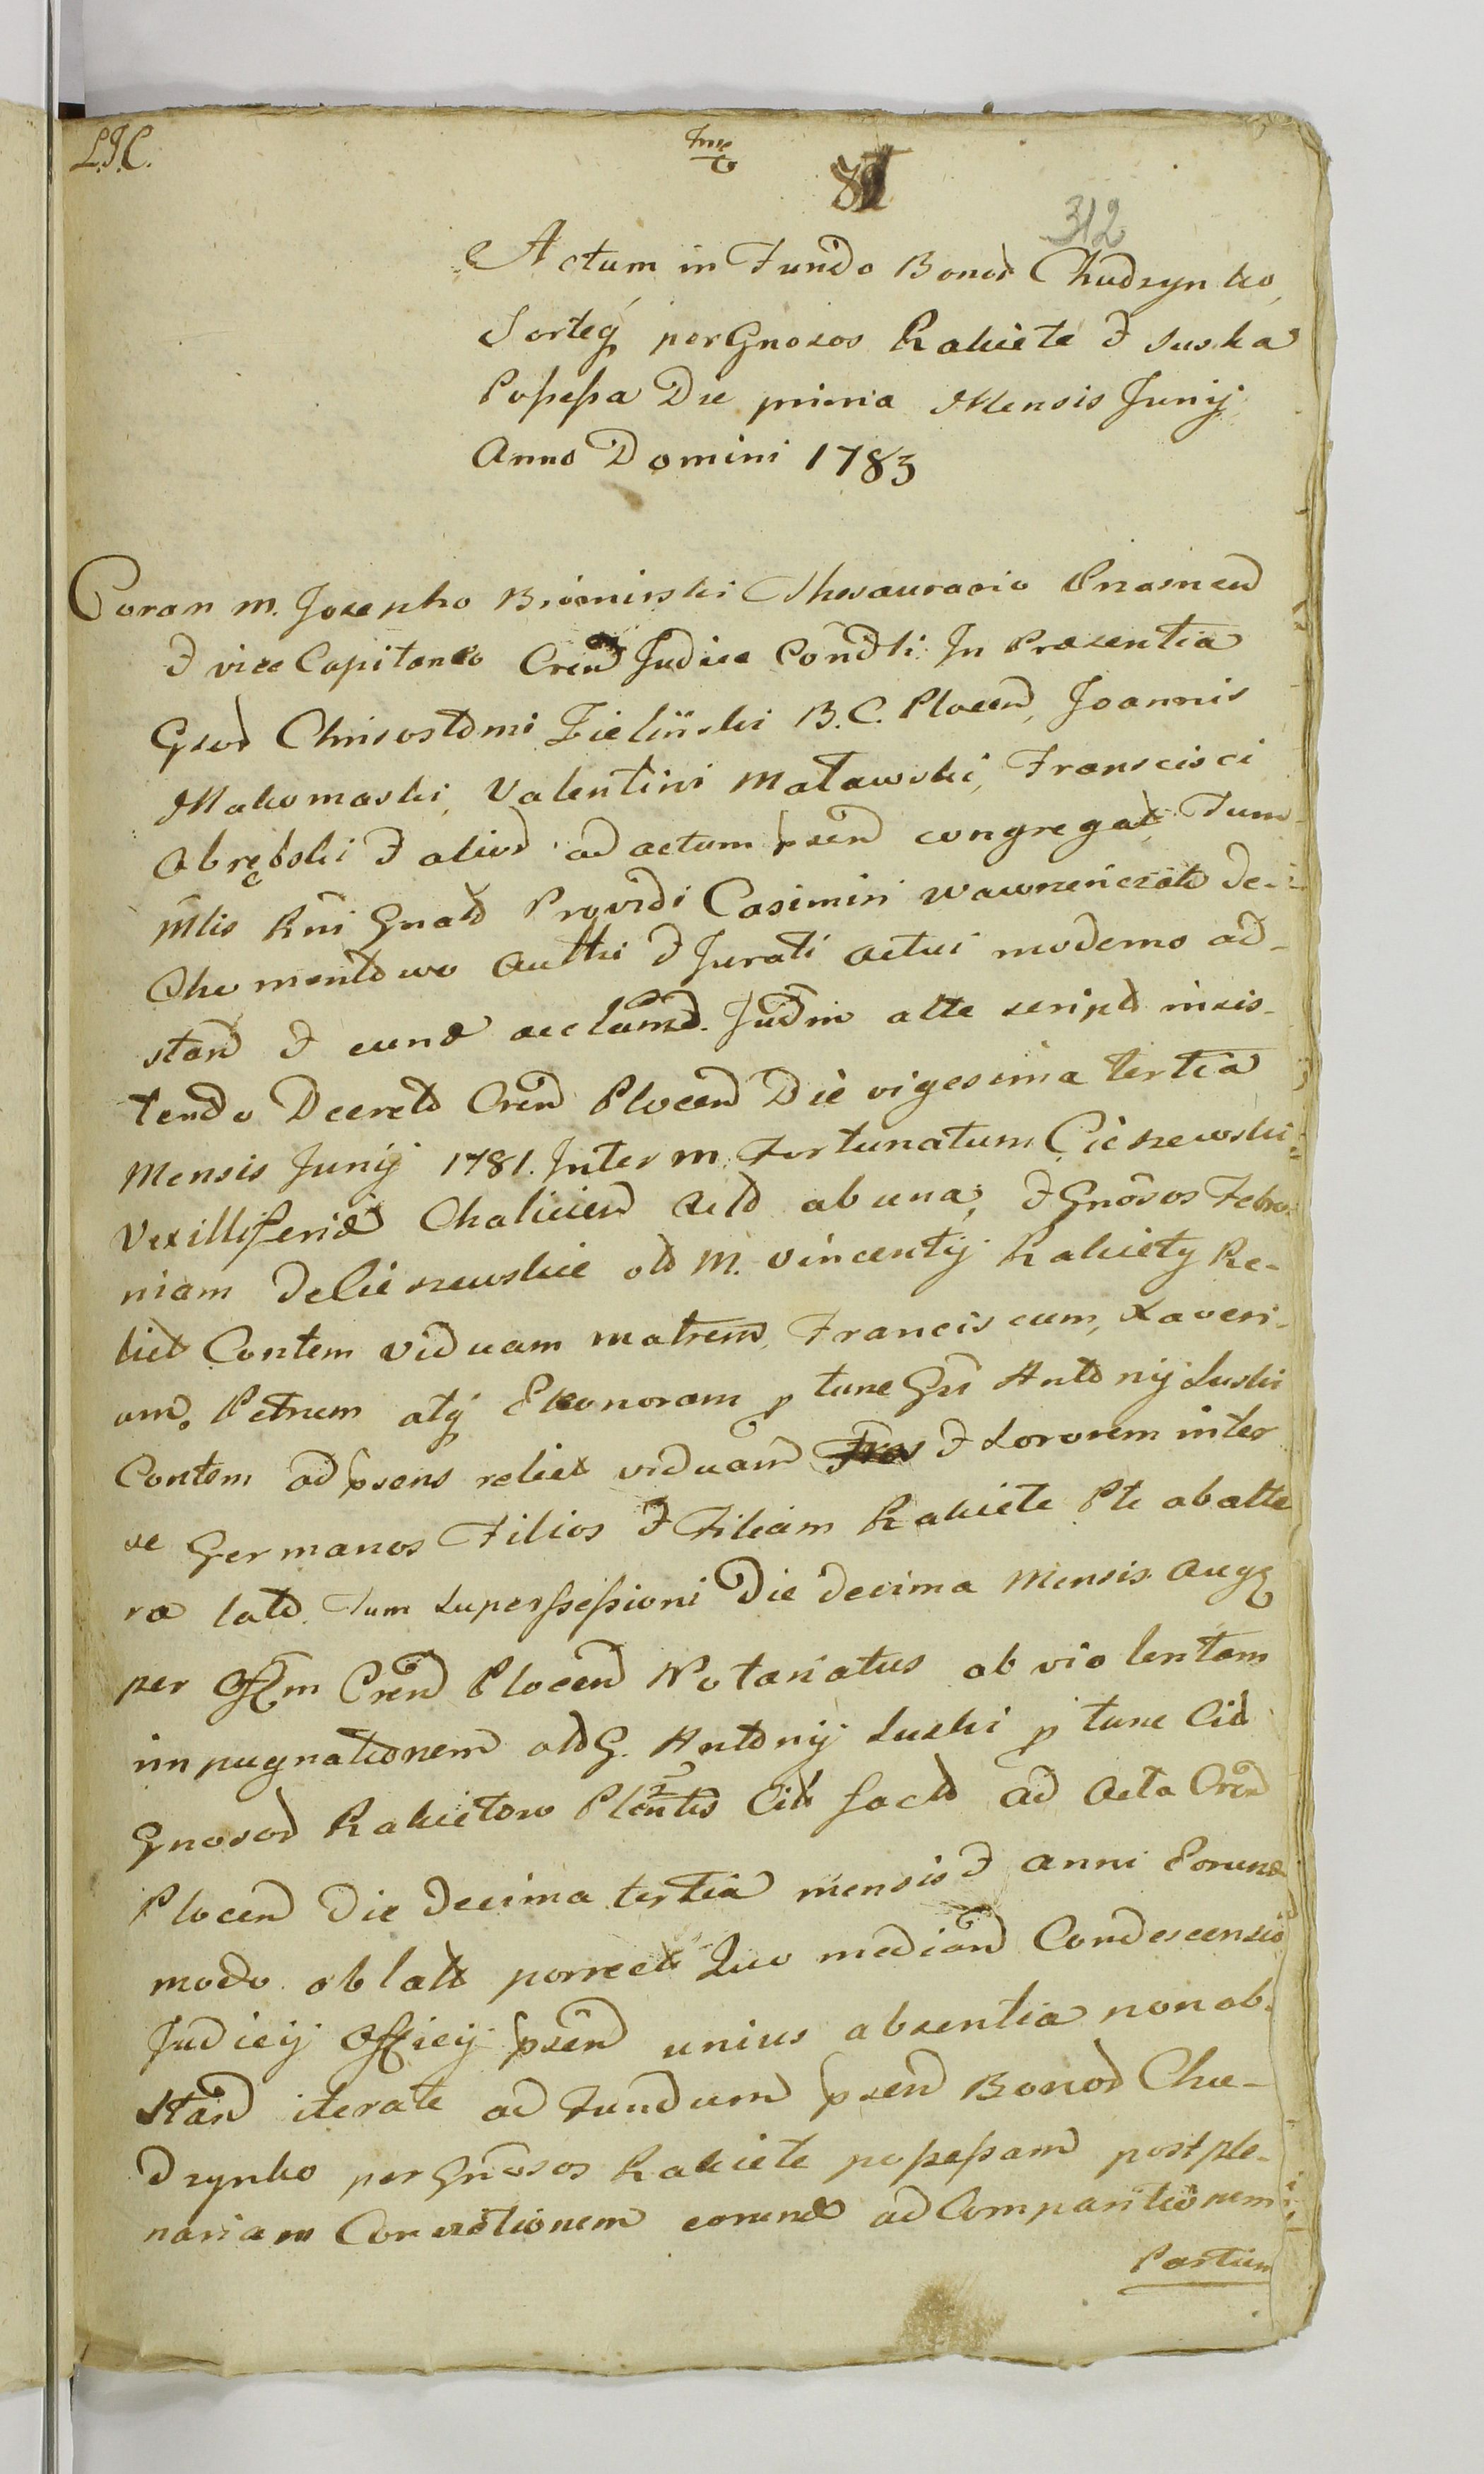 L.J.C.
312
Actum in Fundo Bonor Chudzynko
Sorteq per Gnosos Rakiete & Suska
Possessa Die prima Mensis Junij
Anno Domini 1783
Coram M. Josepho Bromirski Thesaurario Prasnen
& vice Capitaneo Cren Judice Condli In Prasentia
Gsor Chrisostomi Zielinski B.C. Plocen, Joannis
Makomaski, Valentini Matawski, Franscisci
Obrębski & alior ad actum psen congregat Tum
Mlis Rni Gnalo Providi Casimiri Wawrzeńczak de
Chomentowo Autthi & Jurati actui moderno ad-
stan & eund acclaman. Judm atte script insis-
tendo Decreto Cren Plocen Die vigesima tertia
Mensis Junij 1781. Inter M. Fortunatum Cieszewski
Vexilliferid Chalicien Acto ab una, & Gnosos Febro-
niam de Cieszewskie olo M. Vincentij Rakiety Re-
lict Contem viduam matrem, Franciscum, Xaveri-
um, Petrum atq Eleonoram p tunc Gsi Antonij Luski
Contem ad psens relict viduam & Sororem inter
se Germanos Filios & Filiam Rakiete Pte ab alte
ra lato. Tum Supersessioni Die decima Mensis Augq
per Offm Cren Plocen Notariatus ob violentam
impugnationem olo G. Antonij Luski p tunc Cit
Gnosor Rakietow Plentis Cit facto ad Acta Cren
Plocen Die decima tertia mensis & anni Eorund
modo oblato porrect Quo median Condescensio
Judicij Officij psen unius absentia non ob-
stan iterate ad Fundum psen Bonor Chu-
dzynko per Gnosos Rakiete possessam post ple-
nariam Convictionem eorund ad Comparitionem
Partium